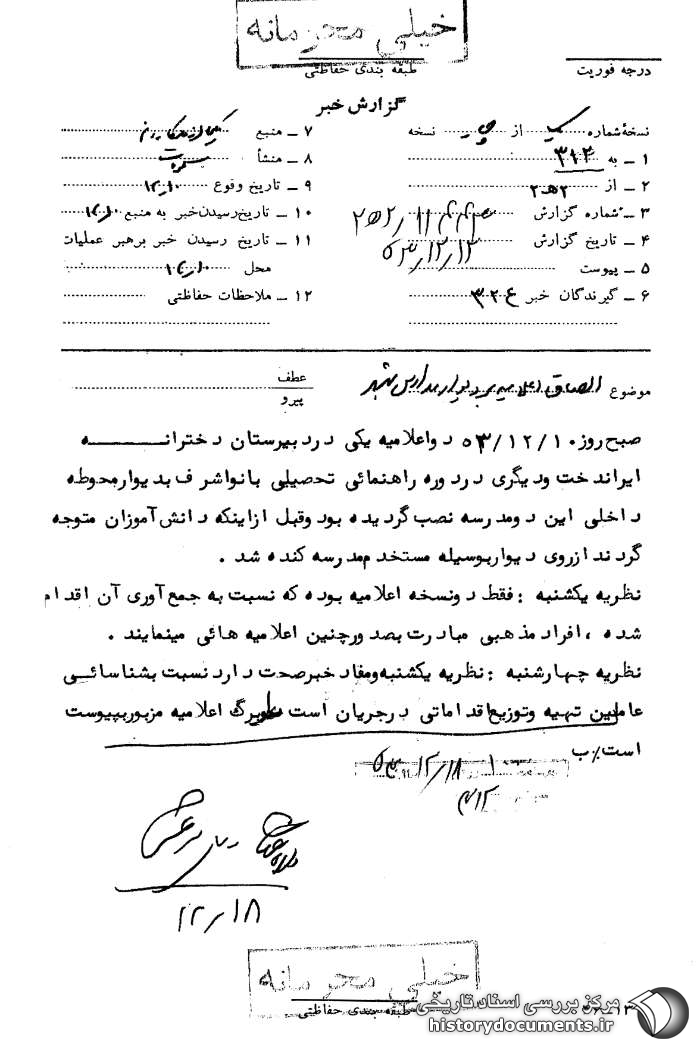 خیلی محرمانه
طبقه بندی حفاظتی
درجه فوریت
گزارش خبر
نسخهٔ شماره یک از چهار نسخه
۱ ــ به ۳۱۴
۲ ــ از ۲ ه‍ ۲
۳ ــ شماره گزارش
۴ ــ تاریخ گزارش ۵۳/۱۲/۱۲
۵ ــ پیوست
۶ ــ گیرندگان خبر
۷ ــ منبع
۸ ــ منشأ
۹ ــ تاریخ وقوع ۱۲/۱۰
۱۰ ــ تاریخ رسیدن خبر به منبع ۱۲/۱۰
۱۱ ــ تاریخ رسیدن خبر برهبر عملیات
محل
۱۲ ــ ملاحظات حفاظتی
موضوع الصاق اعلامیه بر دیوار مدارس شهر
عطف
پیرو
صبح روز ۵۳/۱۲/۱۰ دو اعلامیه یکی در دبیرستان دخترانه
ایراندخت و دیگری در دوره راهنمائی تحصیلی بانو اشرف بدیوار محوطه
داخلی این دو مدرسه نصب گردیده بود و قبل از اینکه دانش آموزان متوجه
گردند از روی دیوار بوسیله مستخدم مدرسه کنده شد .
نظریه یکشنبه : فقط دو نسخه اعلامیه بوده که نسبت به جمع آوری آن اقدام
شده ، افراد مذهبی مبادرت بصدور چنین اعلامیه هائی مینمایند .
نظریه چهارشنبه : نظریه یکشنبه و مفاد خبر صحت دارد نسبت بشناسائی
عاملین تهیه و توزیع اقداماتی در جریان است برگ اعلامیه مزبور بپیوست
است٪ ب
۱۲/۱۸
۴۱۲
۲۲/۱۸
خیلی محرمانه
طبقه بندی حفاظتی
مرکز بررسی اسناد تاریخی
historydocuments.ir